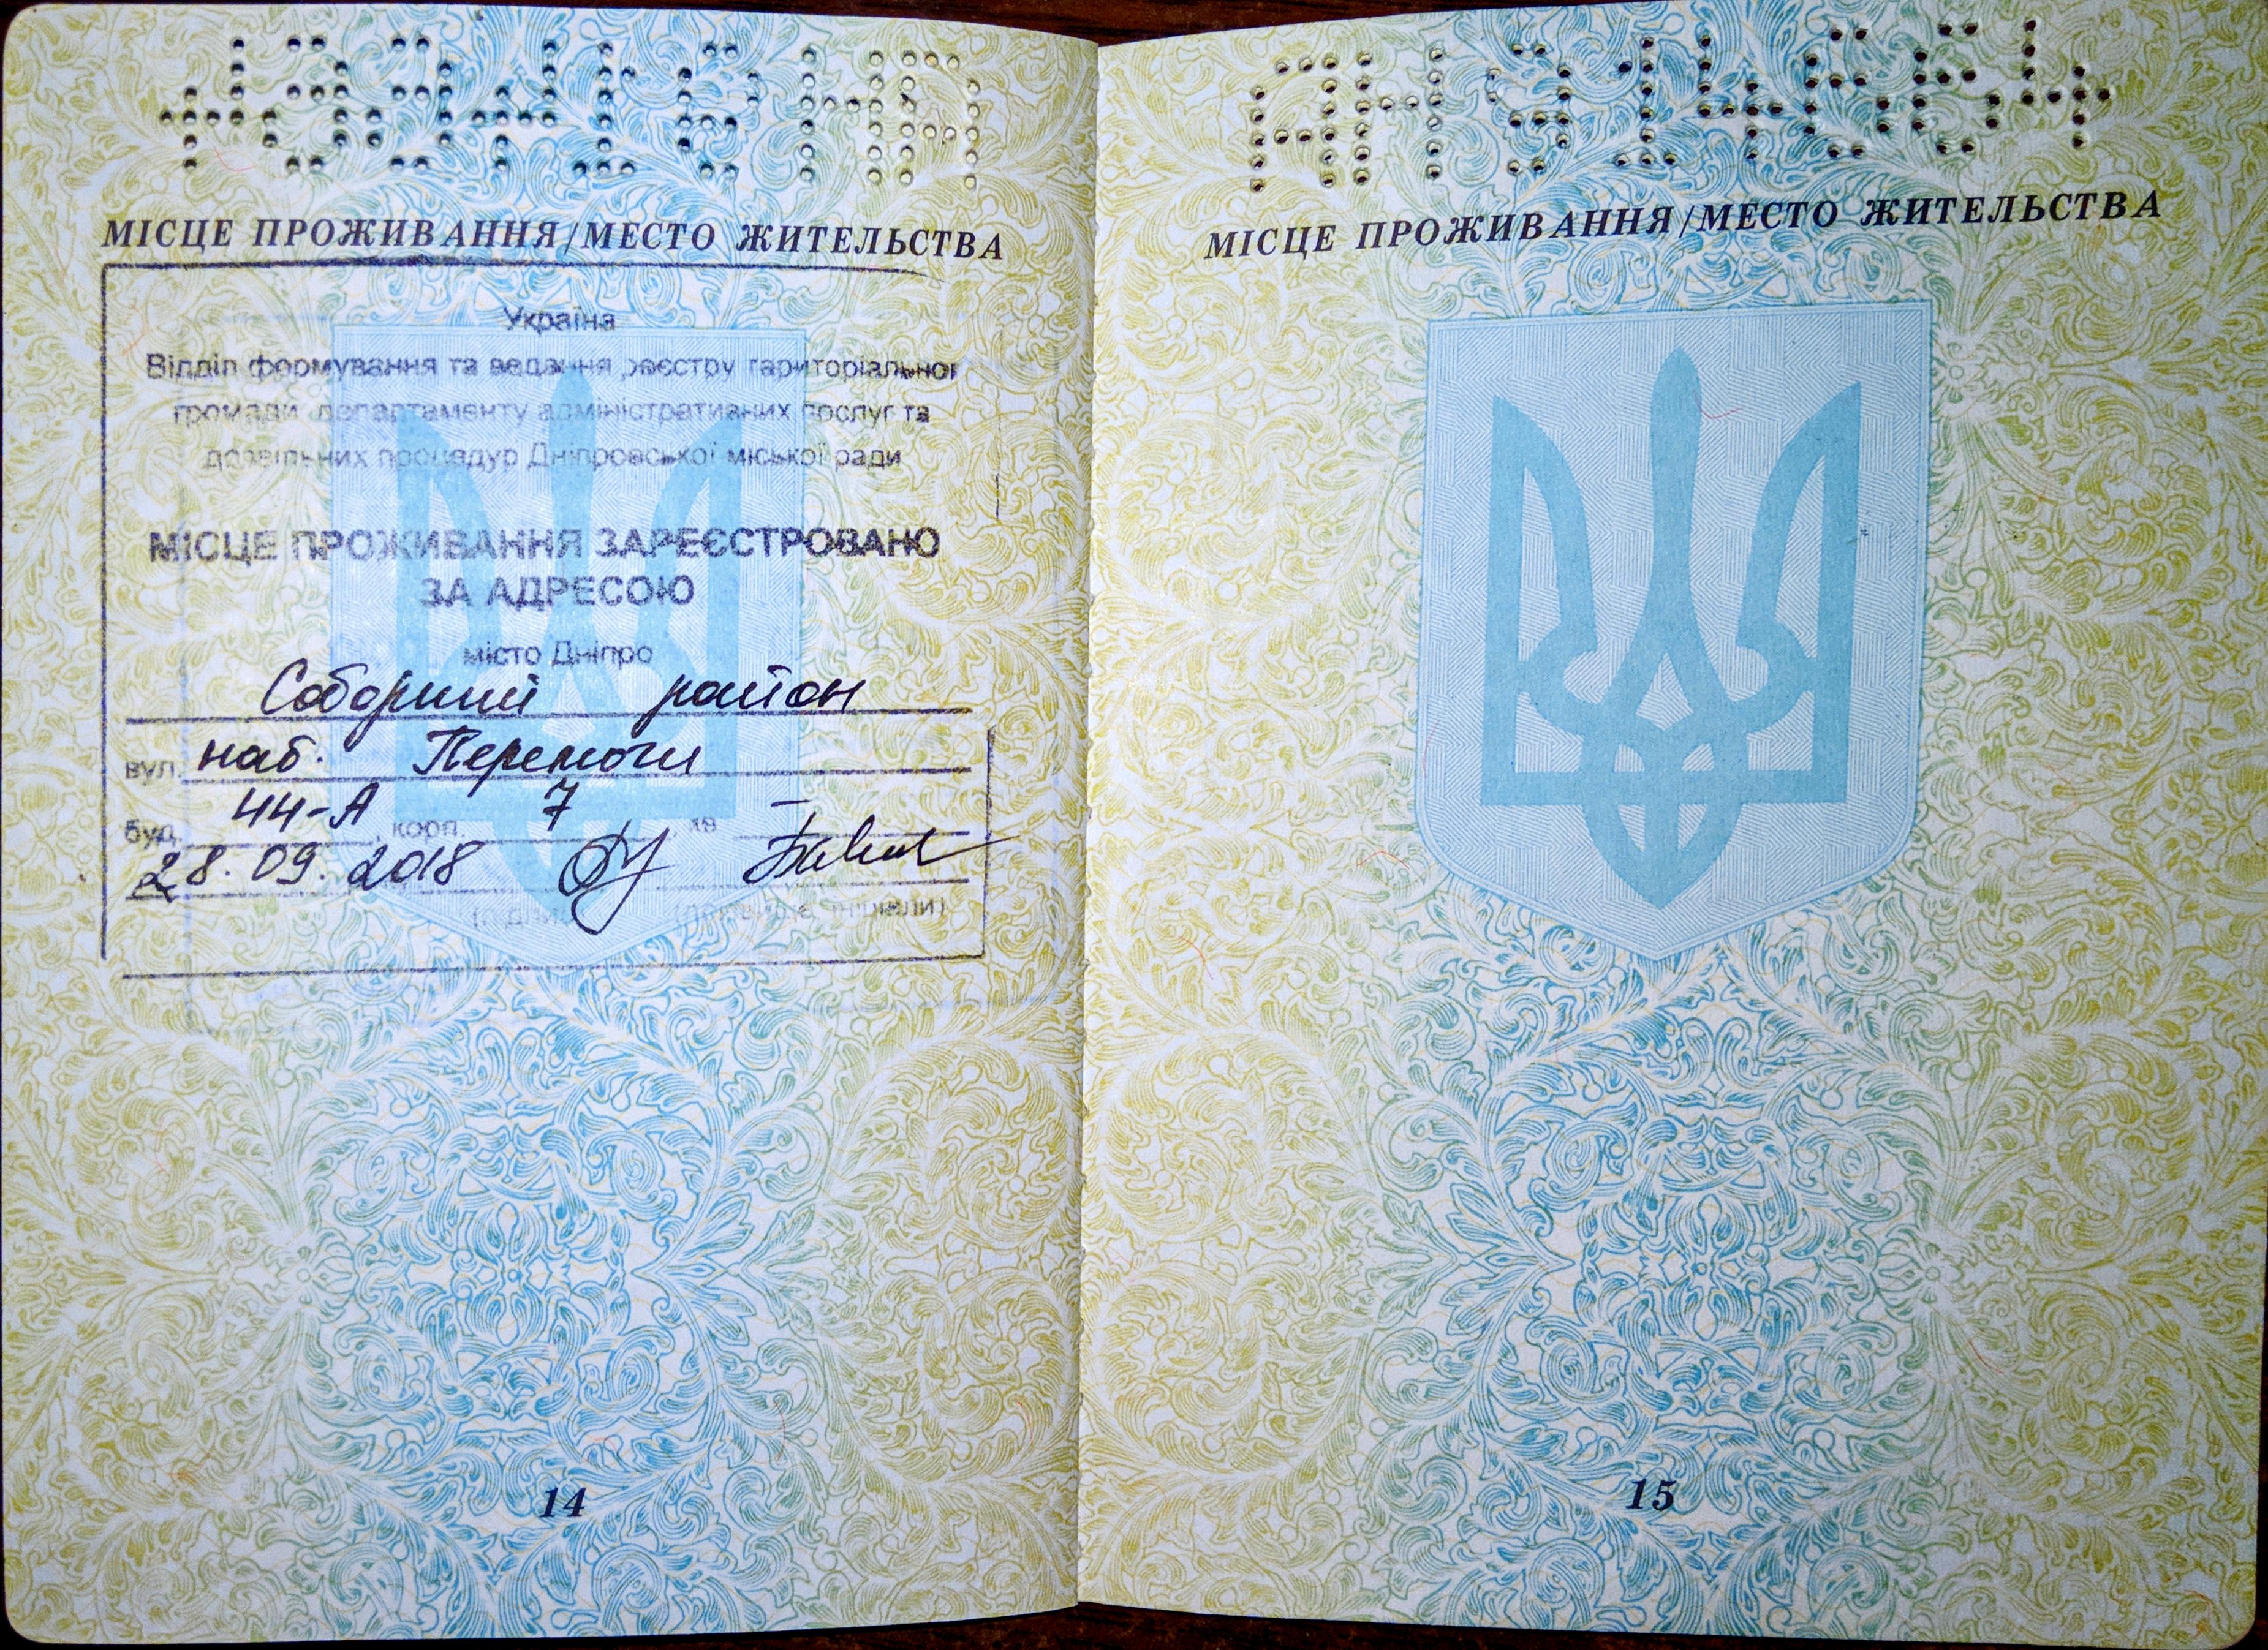 АН914664
МІСЦЕ ПРОЖИВАННЯ/МЕСТО ЖИТЕЛЬСТВА
Україна
Відділ формування та ведення реєстру територіальної
громади департаменту адміністративних послуг та
дозвільних процедур Дніпровської міської ради
МІСЦЕ ПРОЖИВАННЯ ЗАРЕЄСТРОВАНО
ЗА АДРЕСОЮ
місто Дніпро
Соборний район
вул. наб. Перемоги
буд. 44-А, корп. 7, кв. –
28.09.2018
(підпис) (прізвище, ініціали)
14
АН914664
МІСЦЕ ПРОЖИВАННЯ/МЕСТО ЖИТЕЛЬСТВА
15